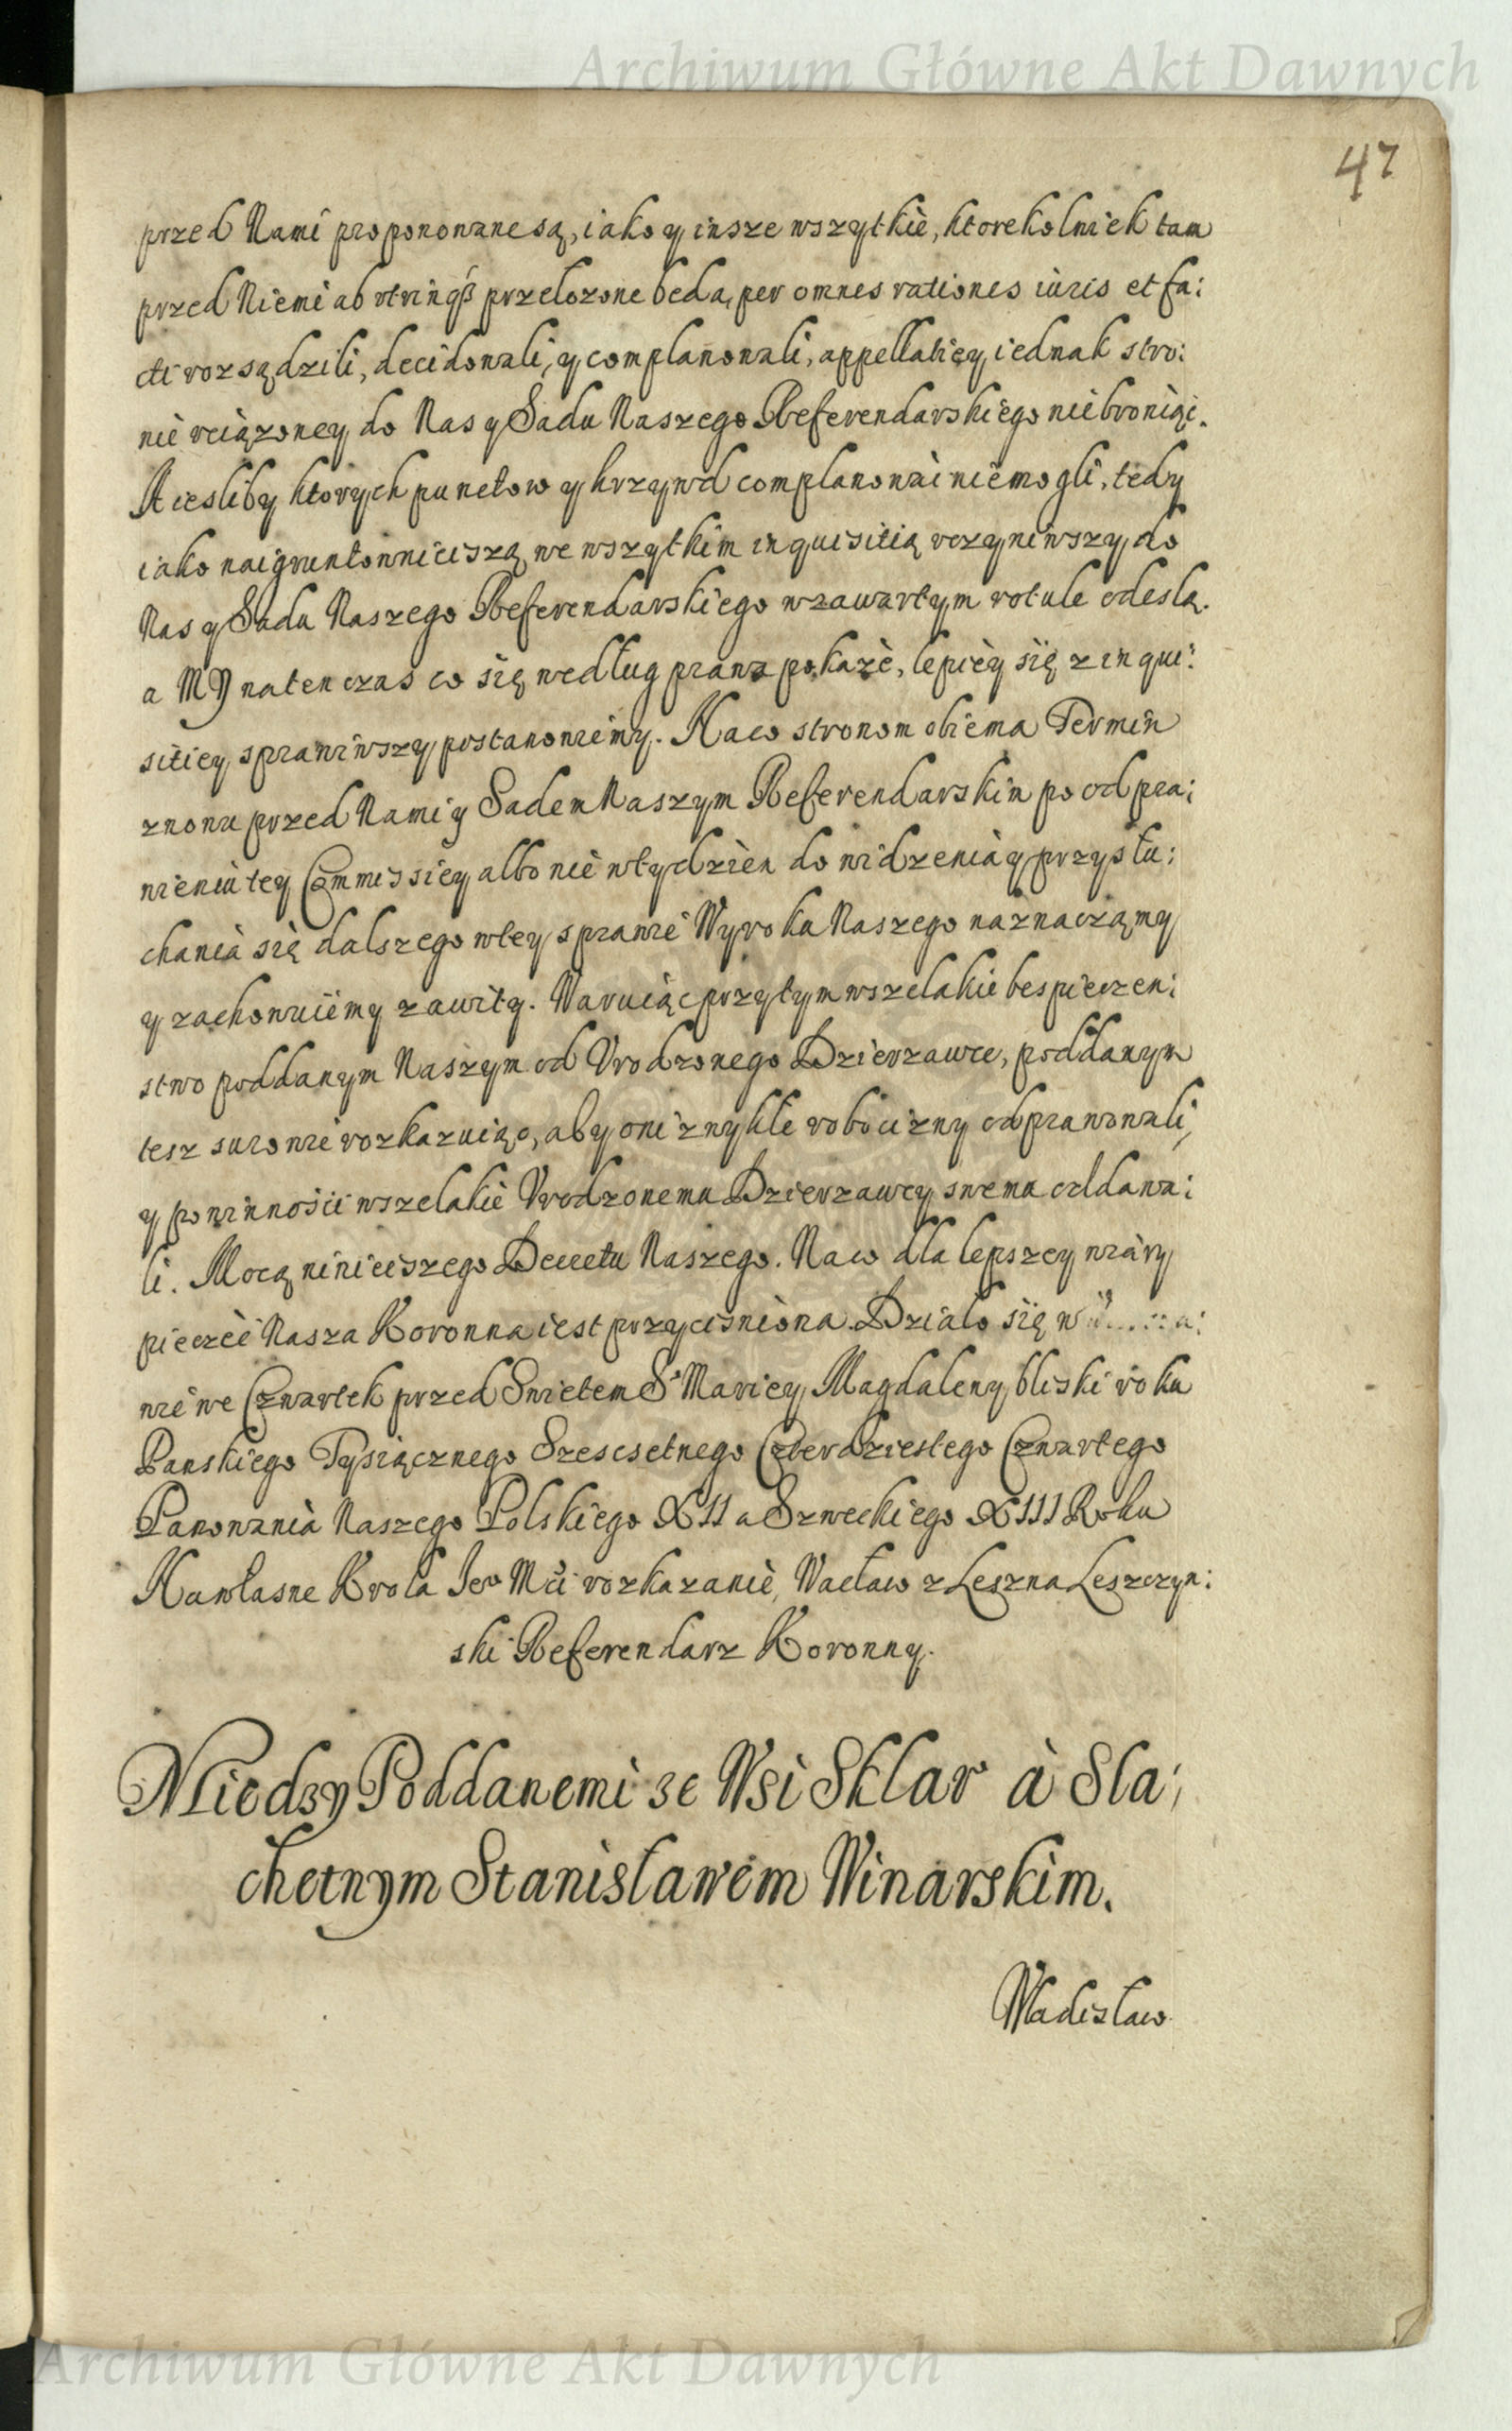 Archiwum Główne Akt Dawnych
47
przed Nami proponowane są, iako y insze wszytkie, ktorekolwiek tam
przed Niemi ab utrinq przełozone beda, per omnes rationes iuris et fa:
cti rozsądzili, decidowali, y complanowali, appellatiey iednak stro:
nie uciązoney do Nas y Sadu Naszego Referendarskiego nie broniąc.
A iesliby ktorych punctow y krzywd complanowac niemogli, tedy
iako naigruntownieiszą we wszytkim inquisitią uczyniwszy do
Nas y Sadu Naszego Referendarskiego w zawartym rotule odeslą.
a MY natenczas co się według prawa pokaże, lepiey się z inqui:
sitiey sprawiwszy postanowiemy. Na co stronom obiema Termin
znowu przed Nami y Sadem Naszym Referendarskim po odpra:
wieniu tey Commissiey albo nie w tydzien do widzenia y przysłu:
chania się dalszego w tey sprawie Wyroku Naszego naznaczamy
y zachowuiemy zawity. Waruiąc przytym wszelakie bespieczen:
stwo poddanym Naszym od Urodzonego Dzierzawce, poddanym
tesz surowie rozkazuiąc, aby oni zwykłe robocizny odprawowali,
y powinnosci wszelakie Urodzonemu Dzierzawcy swemu oddawa:
li. Mocą ninieiszego Decretu Naszego. Na co dla lepszey wiary
pieczęć Nasza Koronna iest przycisniona. Działo się w
wie we Czwartek przed Swietem S Mariey Magdaleny bliski roku
Panskiego Tysiącznego Szescsetnego Czterdziestego Czwartego
Panowania Naszego Polskiego XII a Szweckiego XIII Roku
Na własne Krola Jeo Mci rozkazanie, Wacław z Leszna Leszczyn:
ski Referendarz Koronny.
Miedzy Poddanemi ze Wsi Sklar à Sla:
chetnym Stanisławem Winarskim.
Wladisław
Archiwum Główne Akt Dawnych